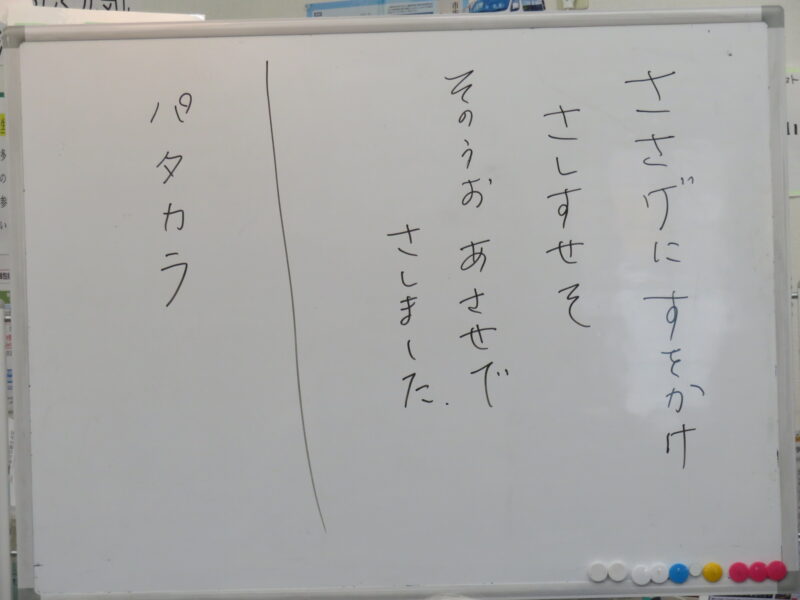 ささげに すをかけ
さしすせそ
そのうお あさせで
さしました.
パタカラ